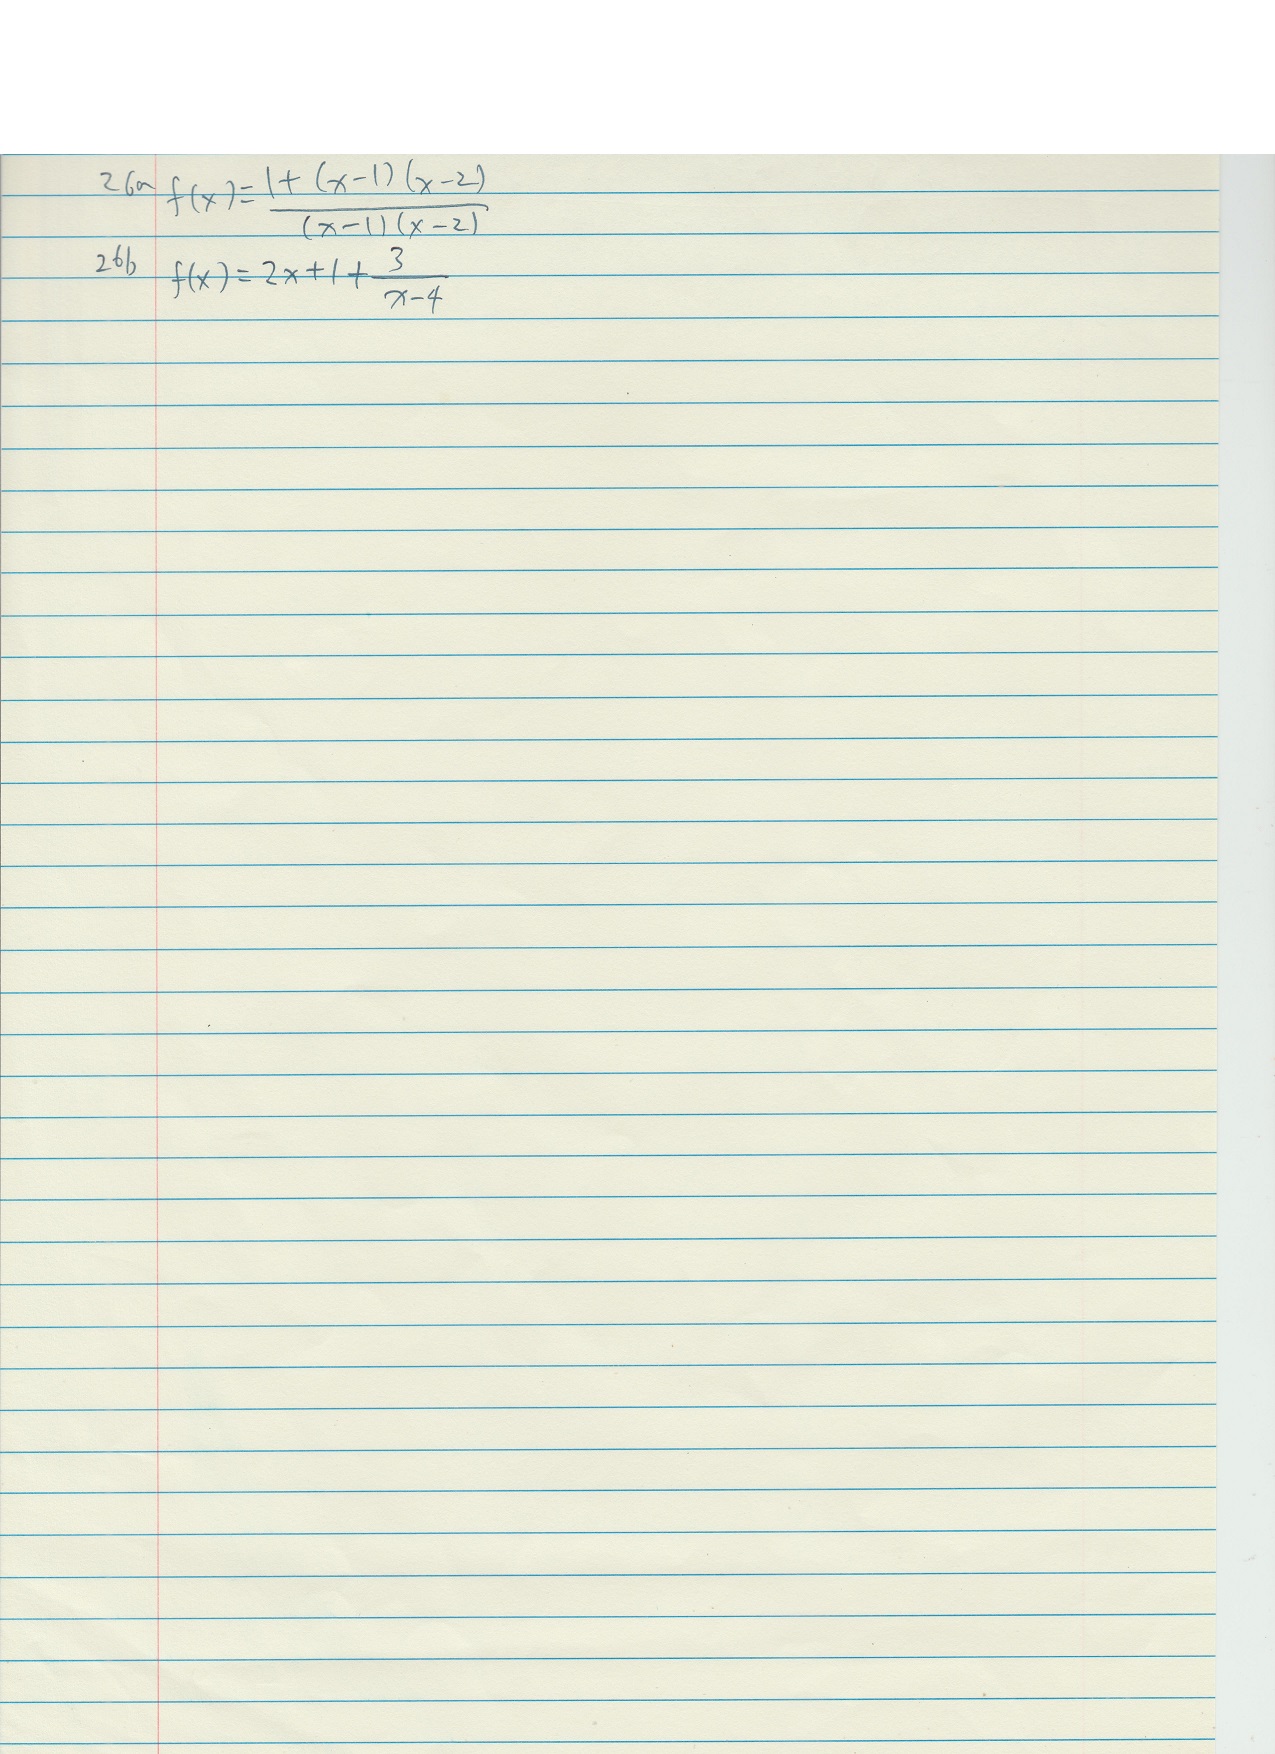 26a f(x) = (1 + (x-1)(x-2)) / ((x-1)(x-2))
26b f(x) = 2x + 1 + 3/(x-4)